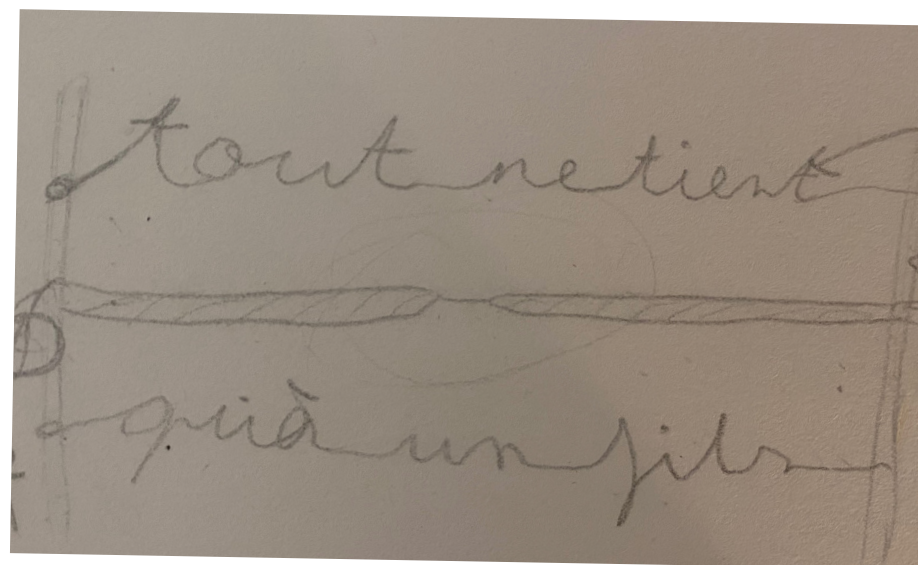 tout ne tient
qu'à un fils